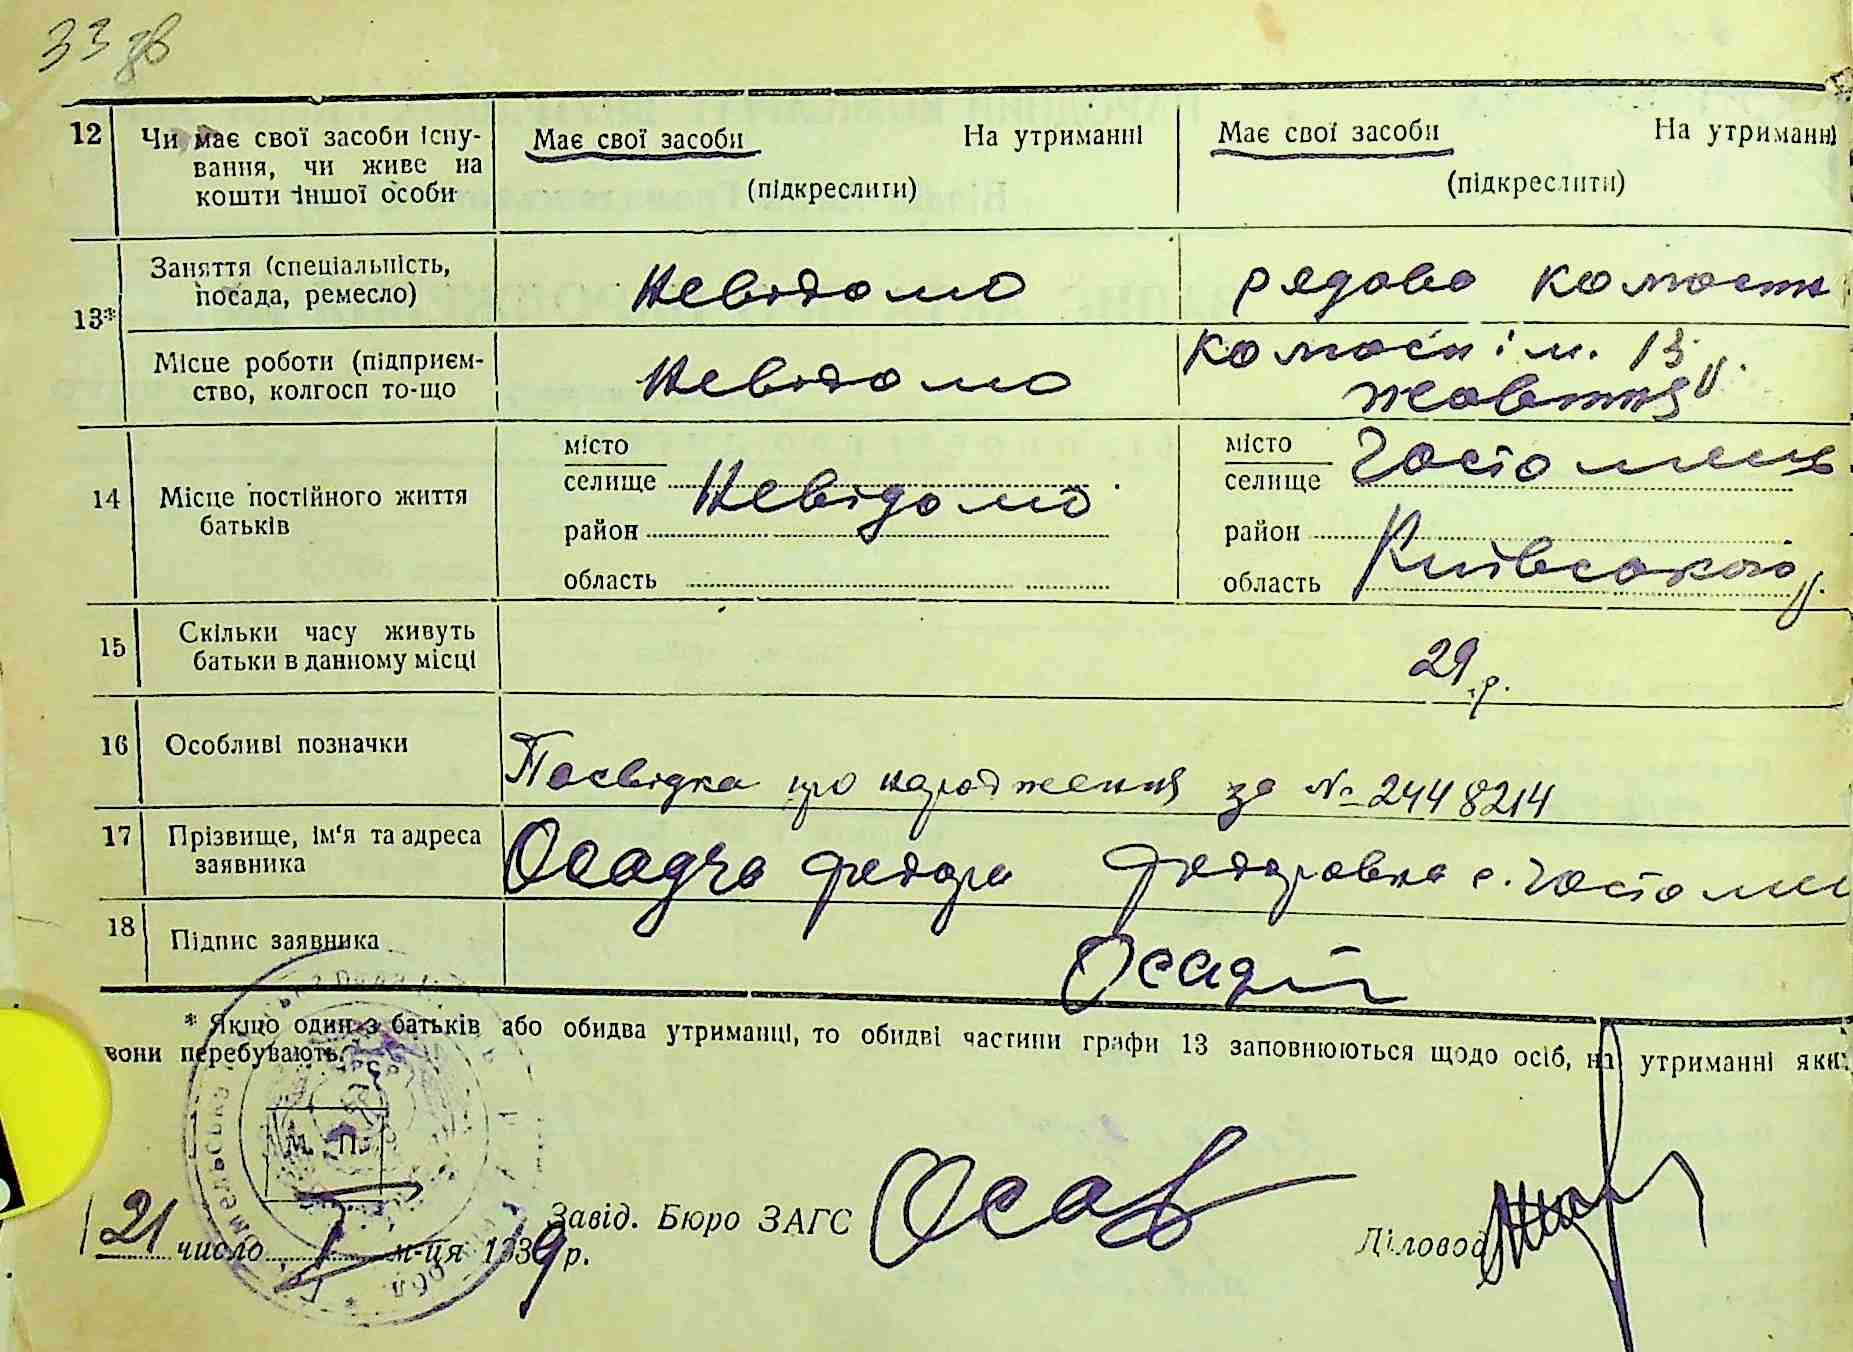 33 зв
12 Чи має свої засоби існу- Має свої засоби На утриманні Має свої засоби На утриманні
вання, чи живе на
кошти іншої особи (підкреслити) (підкреслити)
13* Заняття (спеціальність, Невідомо рядова
посада, ремесло)
Місце роботи (підприєм- Невідомо ім. 13
ство, колгосп то-що жовтня
14 Місце постійного життя
батьків
місто
селище Невідомо
район
область
місто Гостомель
селище
район
область Київського
15 Скільки часу живуть 29 р.
батьки в данному місці
16 Особливі позначки Посвідка про народження за № 2448214
17 Прізвище, ім'я та адреса Осадча Федора Федоровна с. Гостомель
заявника
18 Підпис заявника
* Якщо один з батьків або обидва утриманці, то обидві частини графи 13 заповнюються щодо осіб, на утриманні яких
вони перебувають.
М. П.
Завід. Бюро ЗАГС Діловод
21 число м-ця 1939 р.